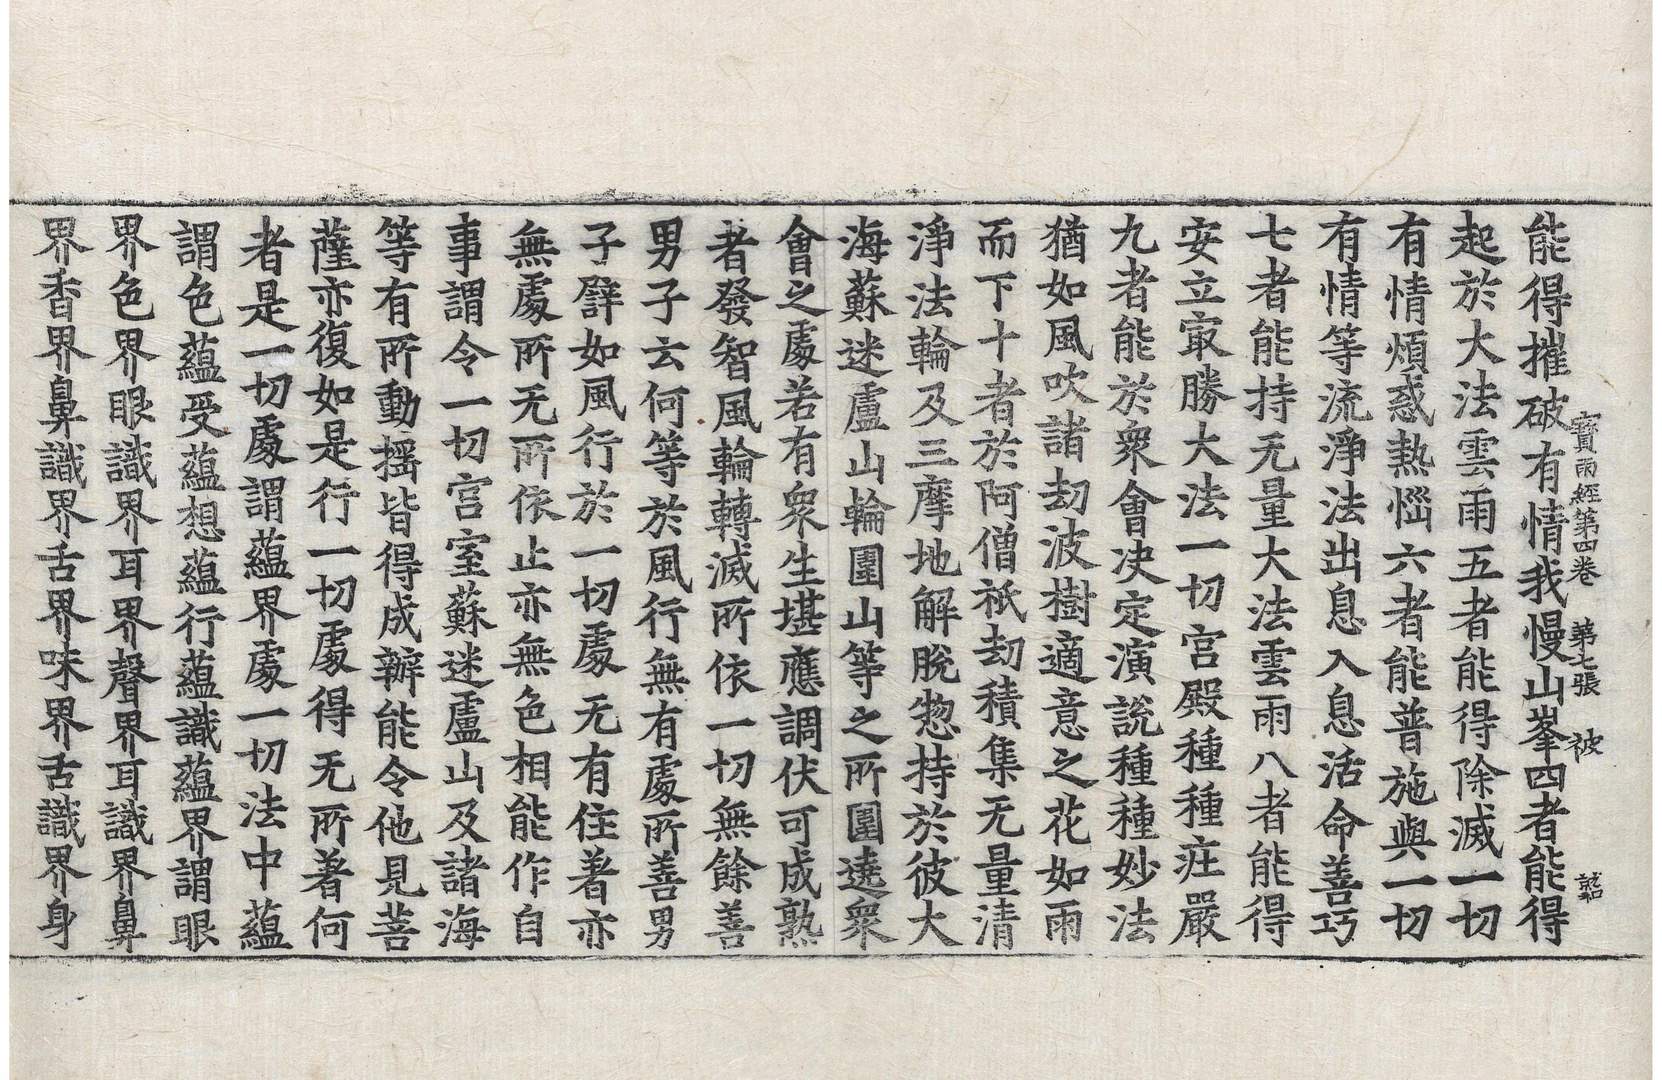 能得摧破有情我慢山峯四者能得
寶雨經第四卷 第七張 被
起於大法雲雨五者能得除滅一切
有情煩惑熱惱六者能普施與一切
有情等流淨法出息入息活命善巧
七者能持无量大法雲雨八者能得
安立寂勝大法一切宮殿種種庄嚴
九者能於衆會决定演說種種妙法
猶如風吹諸劫波樹適意之花如雨
而下十者於阿僧祇劫積集无量清
淨法輪及三摩地解脫惣持於彼大
海蘇迷盧山輪圍山等之所圍遶衆
會之處若有衆生堪應調伏可成熟
者發智風輪轉滅所依一切無餘善
男子云何等於風行無有處所善男
子譬如風行於一切處无有住著亦
無處所无所依止亦無色相能作自
事謂令一切宮室蘇迷盧山及諸海
等有所動搖皆得成辦能令他見菩
薩亦復如是行一切處得无所著何
者是一切處謂蘊界處一切法中蘊
謂色蘊受蘊想蘊行蘊識蘊界謂眼
界色界眼識界耳界聲界耳識界鼻
界香界鼻識界舌界味界舌識界身